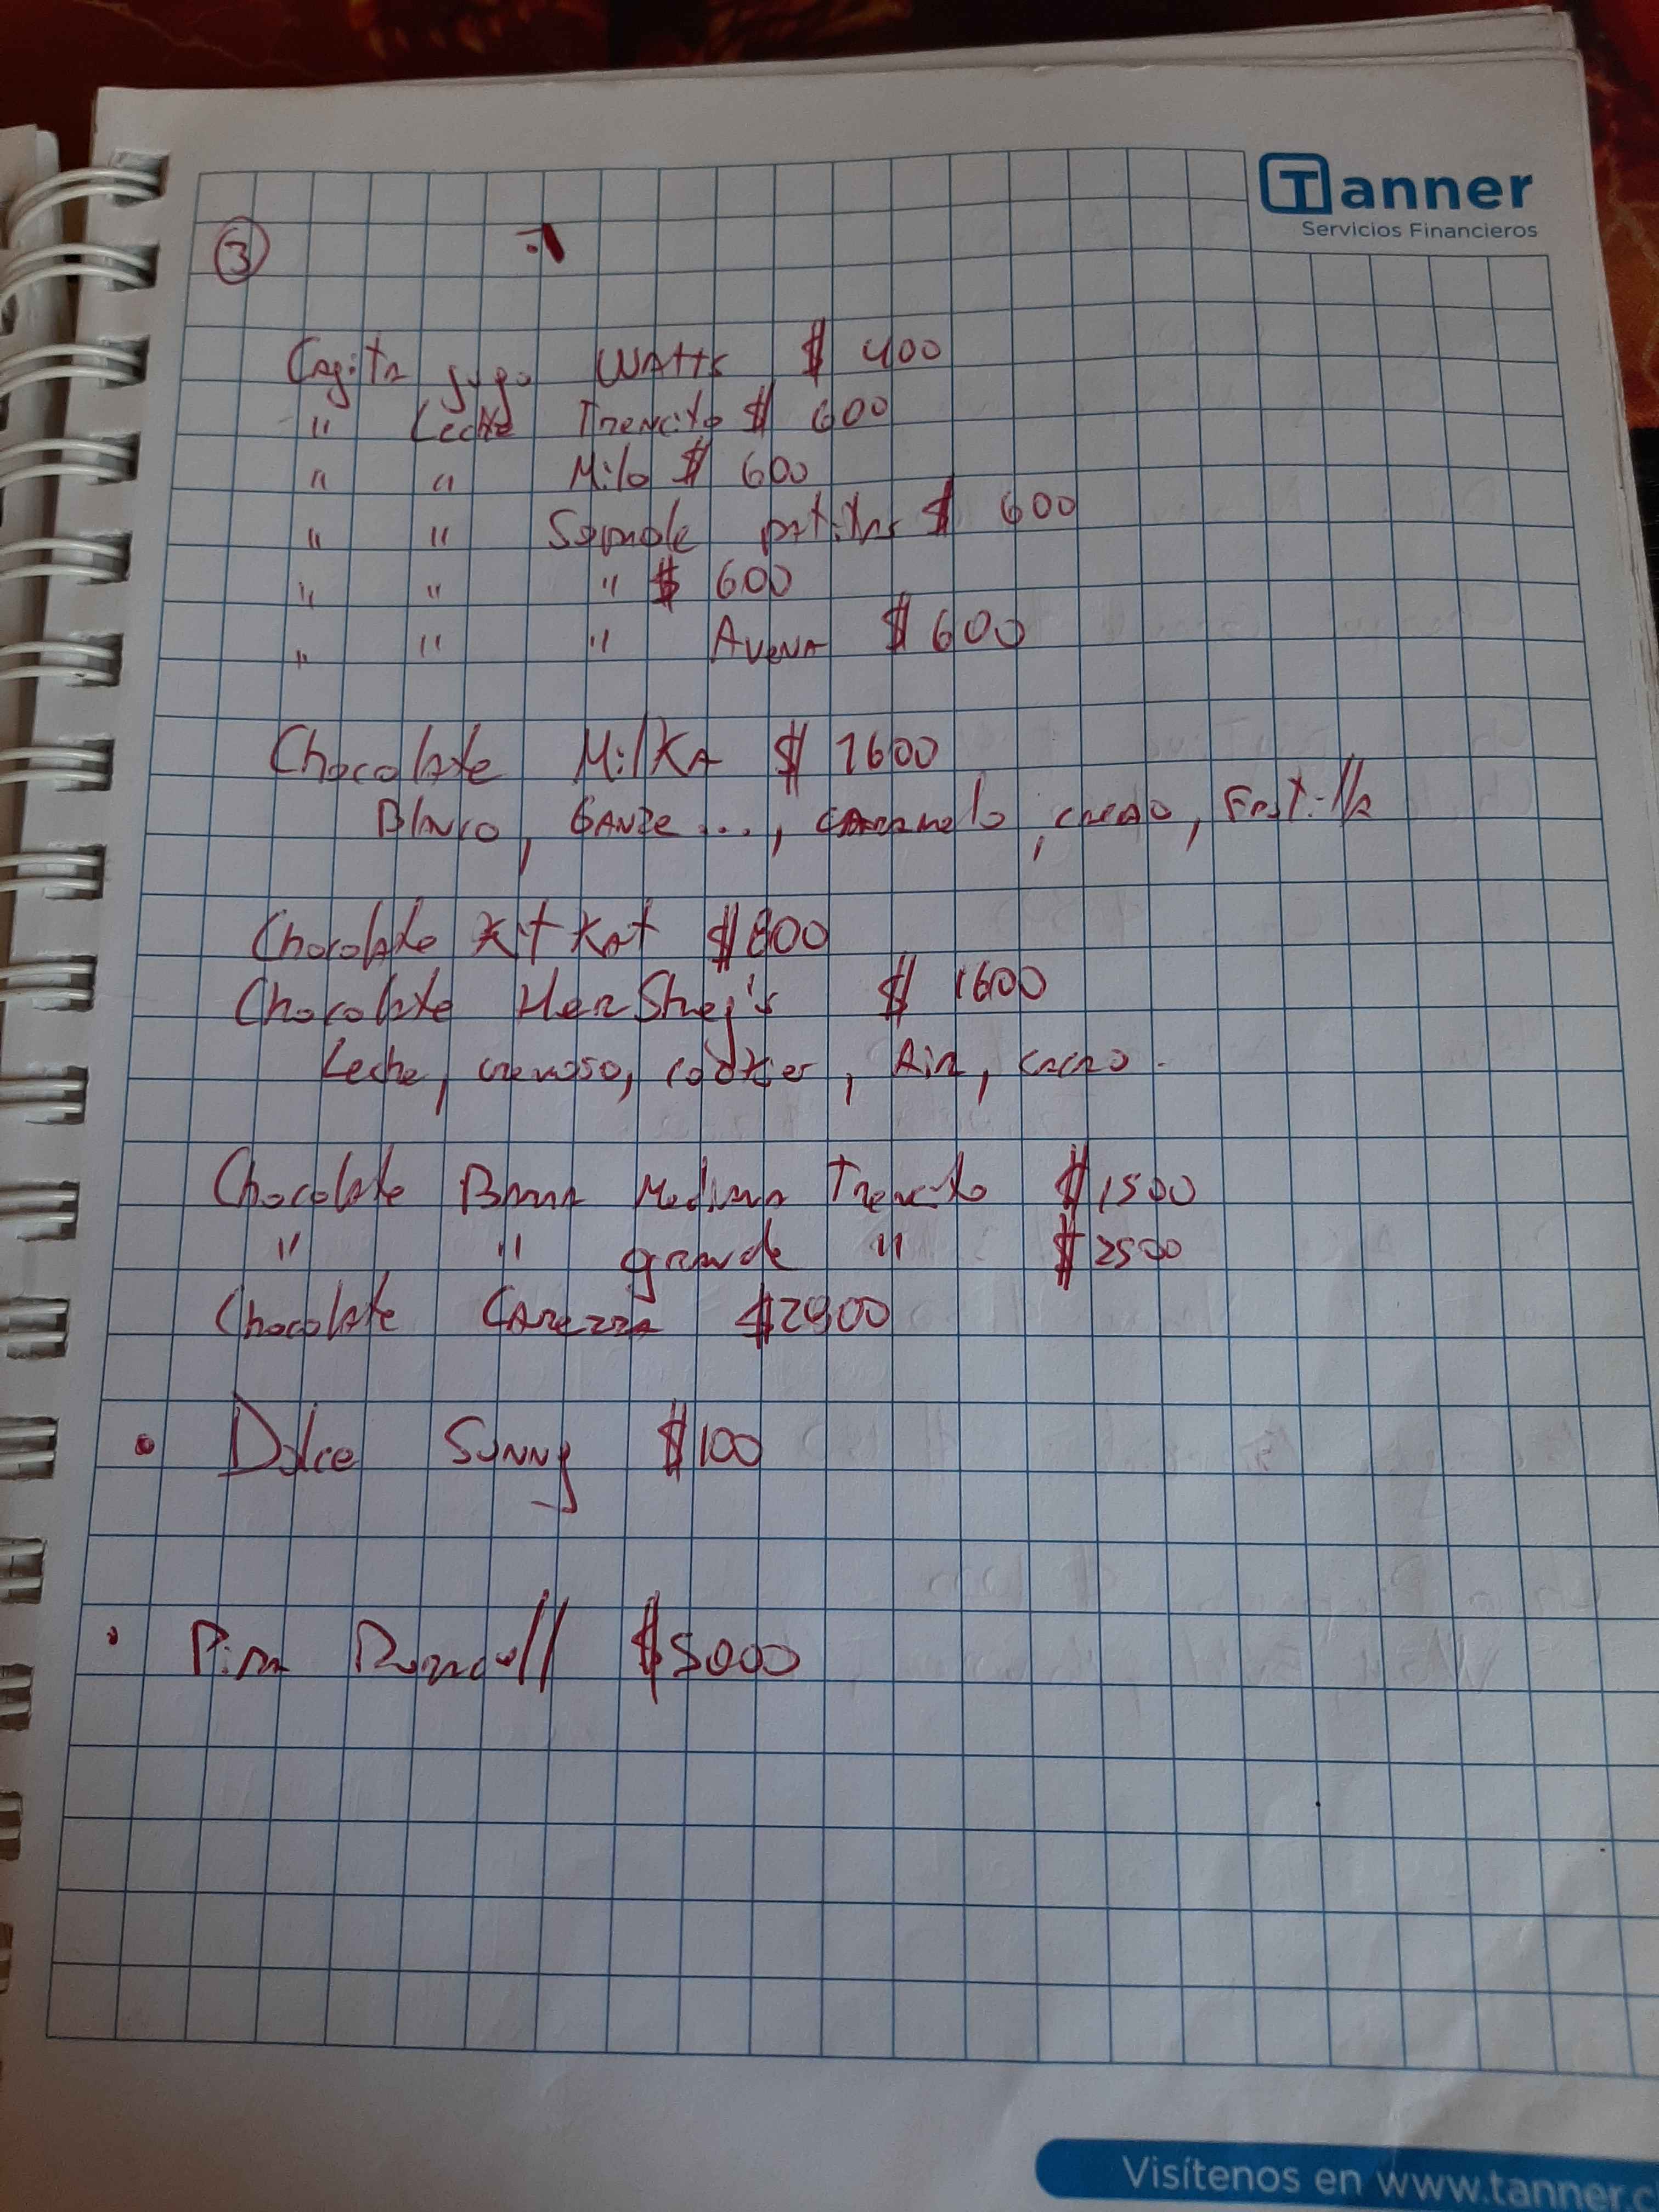 Tanner
Servicios Financieros
3
Cagita jugo WATTS $ 400
" Leche Trencito $ 600
" " Milo $ 600
" " Sqmole $ 600
" " " $ 600
" " " AVENA $ 600
Chocolate MilKA $ 1600
Blanco, GANZE ..., caramelo, cacao, Frutilla
Chocolate Kit Kat $800
Chocolate HerShey's $ 1600
Leche, cremoso, cookies, Air, cacao.
Chocolate Barra Mediana Trencito $1500
" " grande " $2500
Chocolate CArezzA $2900
Dulce Sunny $100
$5000
Visítenos en www.tanner.c